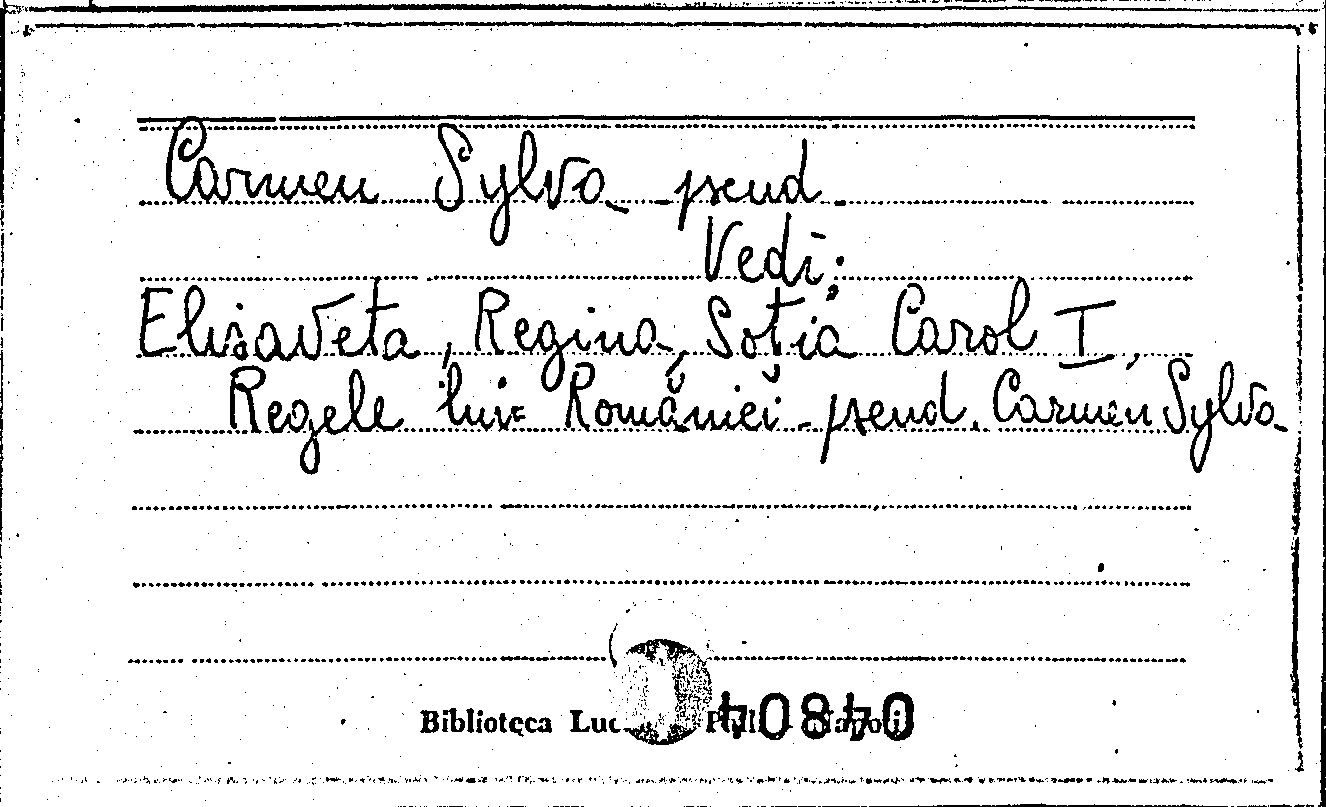 Carmen Sylva - pseud.
Vedi:
Elisaveta, Regina, Soția Carol I,
Regele lui România - pseud. Carmen Sylva
Biblioteca